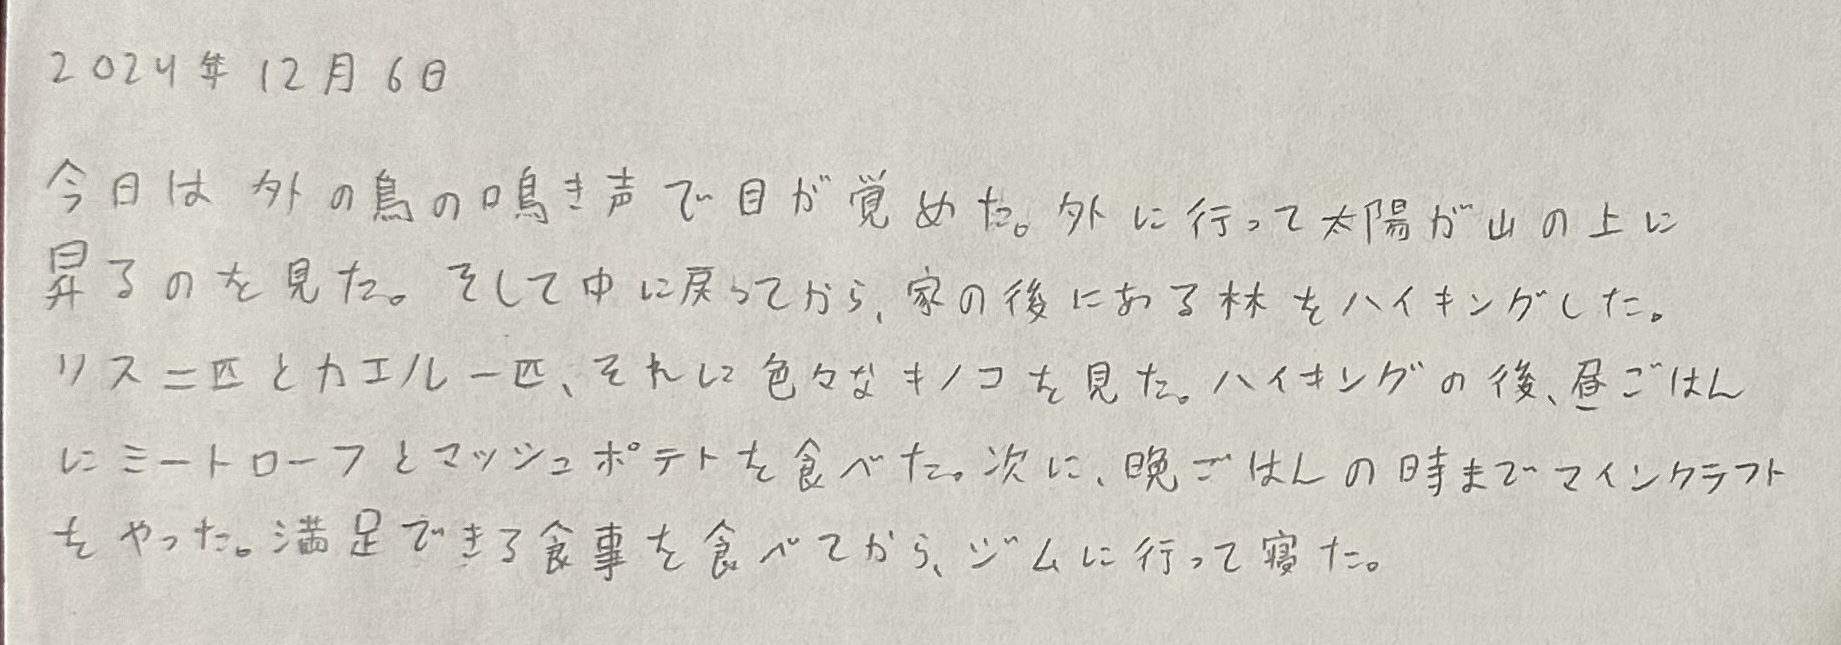 2024年12月6日
今日は外の鳥の鳴き声で目が覚めた。外に行って太陽が山の上に
昇るのを見た。そして中に戻ってから、家の後にある林をハイキングした。
リス二匹とカエル一匹、それに色々なキノコを見た。ハイキングの後、昼ごはん
にミートローフとマッシュポテトを食べた。次に、晩ごはんの時までマインクラフト
をやった。満足できる食事を食べてから、ジムに行って寝た。